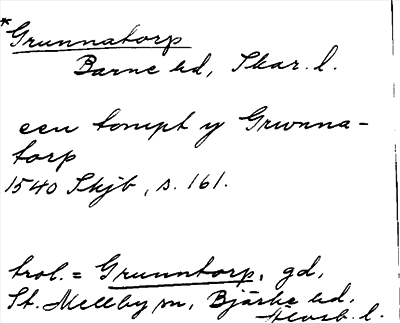 *Grunnatorp
Barne hd, Skar. l.
een tompt y Grwnna-
torp
1540 Skjb, s. 161.
trol. = Grunntorp, gd,
St. Mellby sn, Bjärke hd,
Älvsb. l.